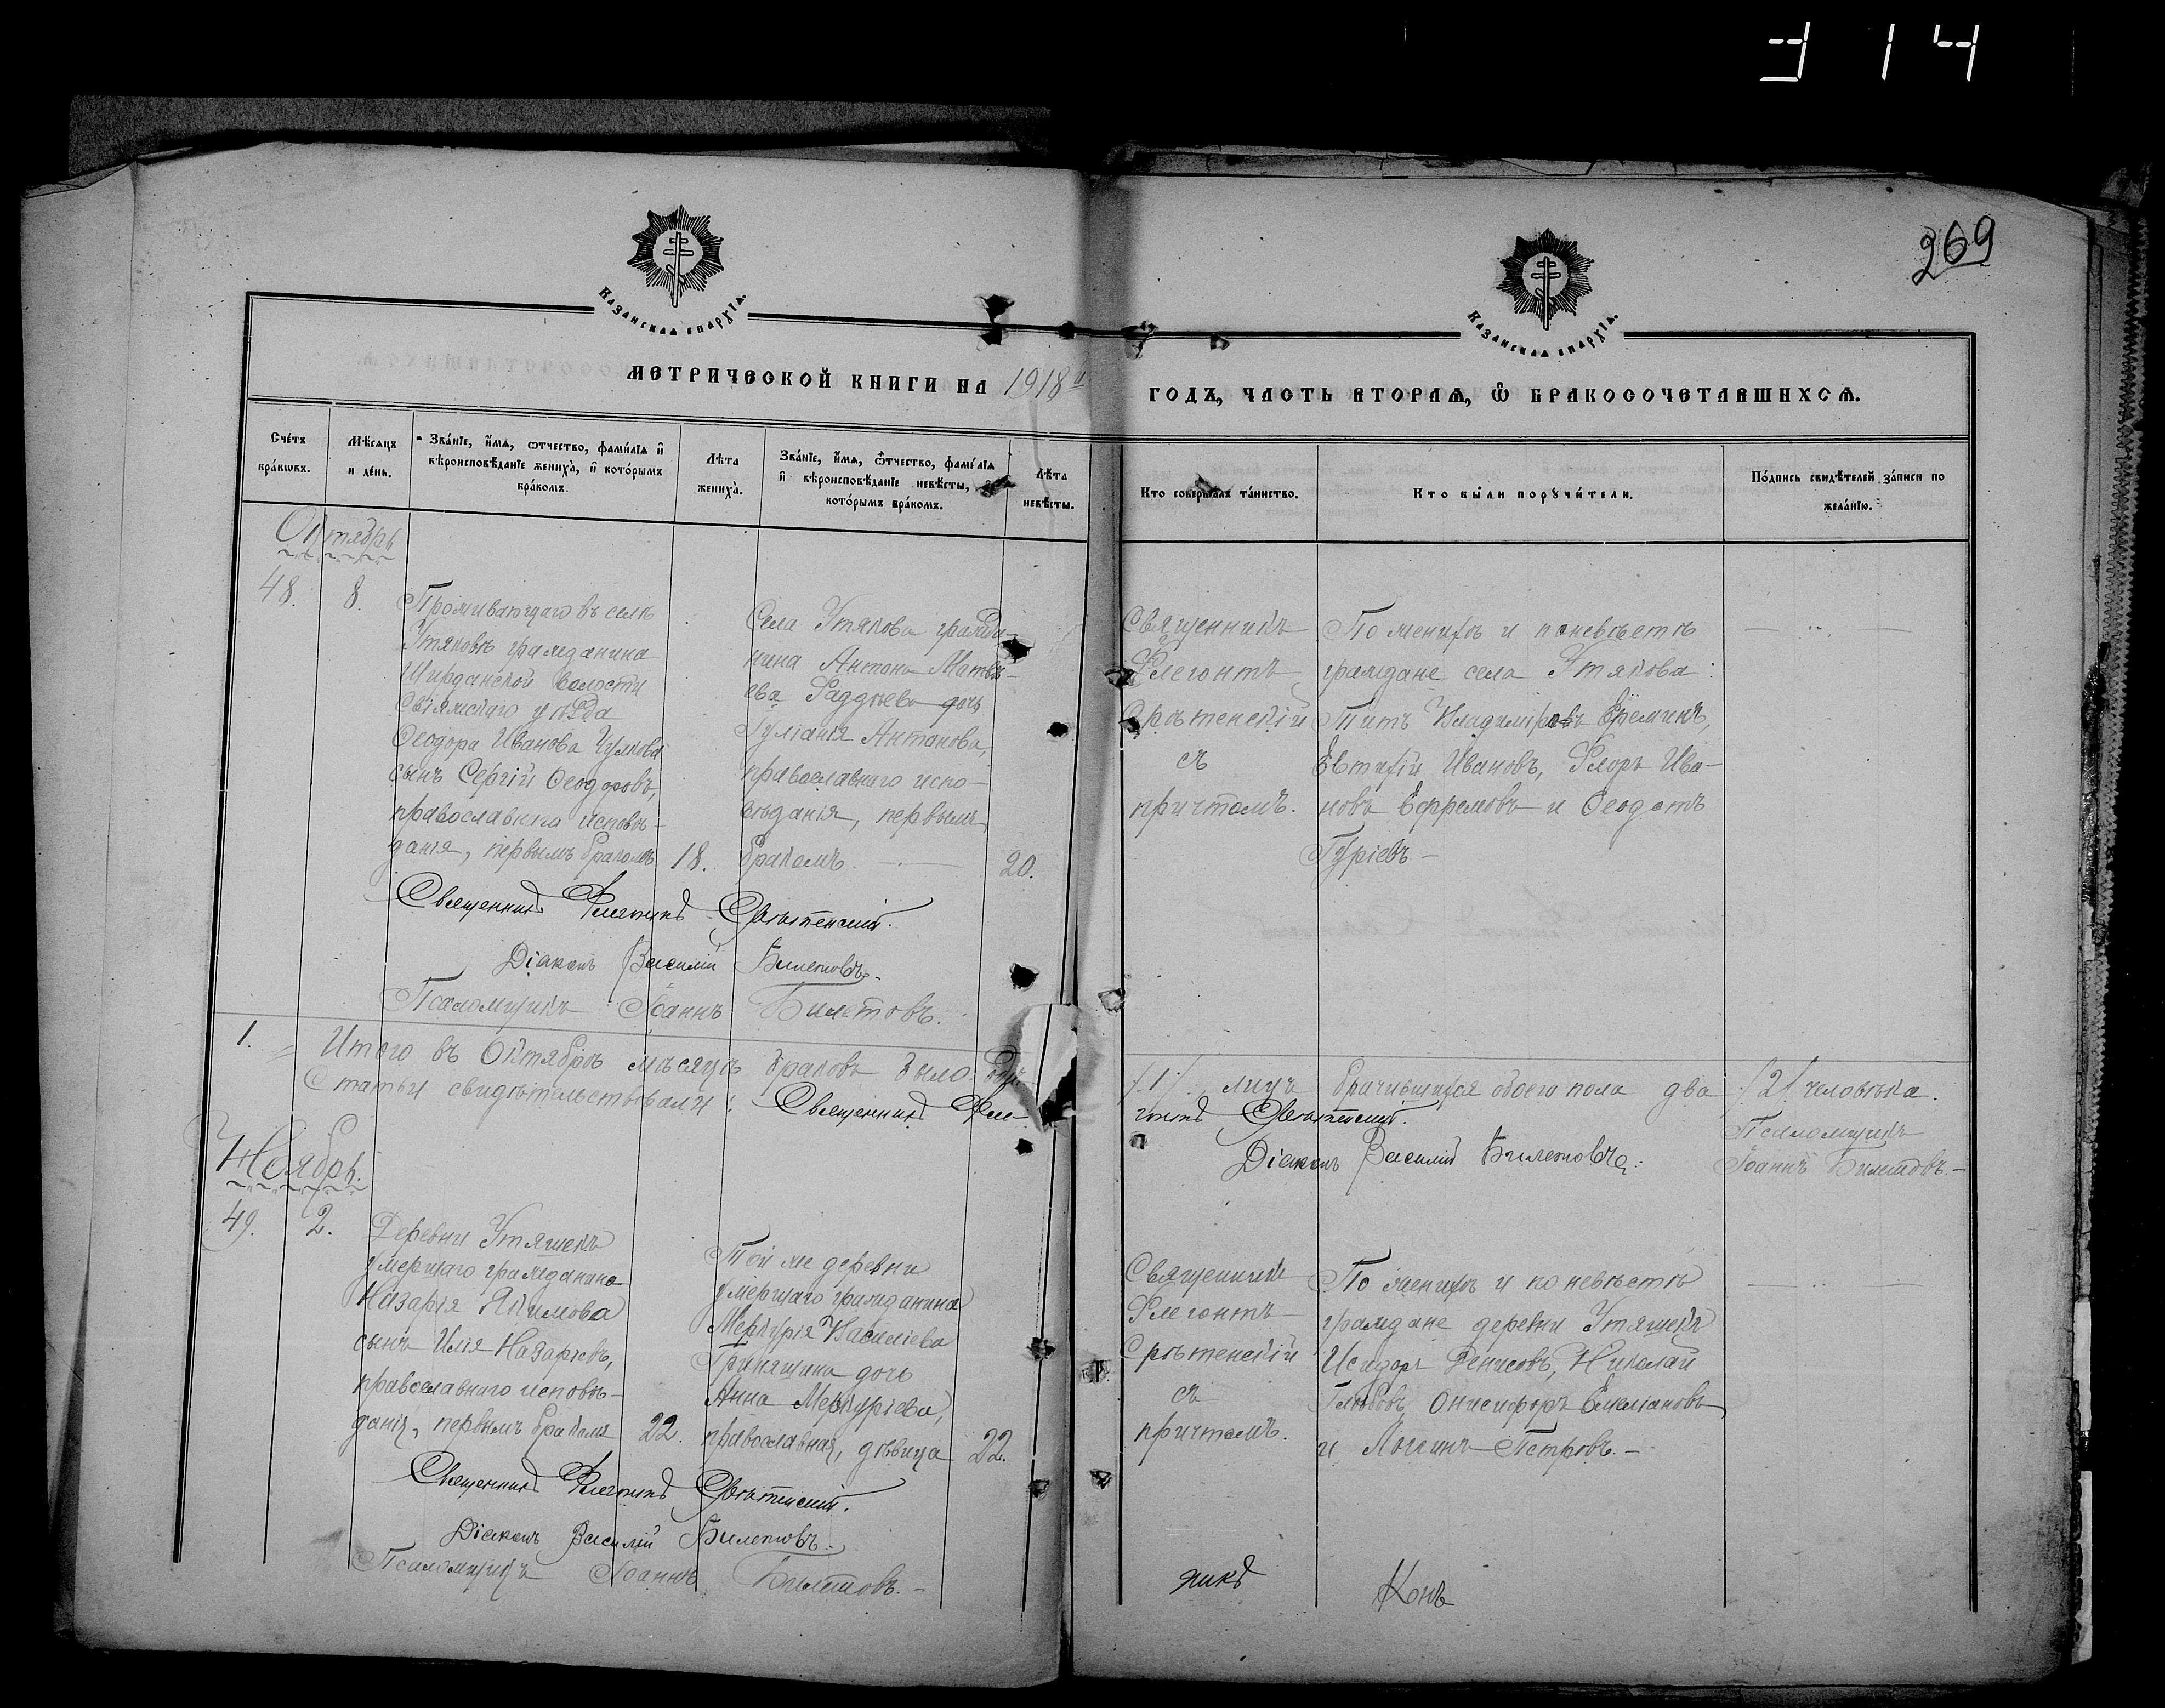 314
269
Казанская епархїѧ.
Казанская епархїѧ.
МЕТРИЧЕСКОЙ КНИГИ НА 1918й ГОДЪ, ЧАСТЬ ВТОРАѦ, Ѡ БРАКОСОЧЕТАВШИХСѦ.
Счетъ браковъ.
Мѣсяцъ и день.
Званїе, имя, отчество, фамилїя и вѣроисповѣданїе жениха, и которымъ бракомъ.
Лѣта жениха.
Званїе, имя, отчество, фамилїя и вѣроисповѣданїе невѣсты, и которымъ бракомъ.
Лѣта невѣсты.
Кто совершалъ таинство.
Кто были поручители.
Подпись свидѣтелей записи по желанїю.
Октябрь
48. 8.
Проживающаго въ селѣ
Утяковѣ гражданина
Ширданской волости
Свіяжскаго уѣзда
Ѳеодора Иванова Чулкова
сынъ Сергій Ѳеодоровъ,
православнаго исповѣ-
данія, первымъ бракомъ
18.
Села Утякова гражда-
нина Антона Матвѣ-
ева Фаддѣева дочь
Іуліанія Антонова,
православнаго испо-
вѣданія, первымъ
бракомъ.
20.
Священникъ
Флегонтъ
Срѣтенскій
съ
причтомъ.
По женихѣ и по невѣстѣ
граждане села Утякова:
Титъ Владиміровъ Ереминъ,
Евтихій Ивановъ, Флоръ Ива-
новъ Ефремовъ и Ѳеодотъ
Гурiевъ.
Священникъ Флегонтъ Срѣтенскій.
Діаконъ Василій Билетовъ.
Псаломщикъ Іоаннъ Билетовъ.
1. Итого въ Октябрѣ мѣсяцѣ браковъ было одинъ /1/, лицъ брачившихся обоего пола два /2/ человѣка.
Статьи свидѣтельствовали: Священникъ Флегонтъ Срѣтенскій.
Діаконъ Василій Билетовъ.
Псаломщикъ
Іоаннъ Билетовъ.
Ноябрь.
49. 2.
Деревни Утяшекъ
умершаго гражданина
Назарія Якимова
сынъ Илія Назаріевъ,
православнаго исповѣ-
данія, первымъ бракомъ
22.
Той же деревни
умершаго гражданина
Меркурія Василіева
дочь
Анна Меркуріева,
православная, дѣвица
22.
Священникъ
Флегонтъ
Срѣтенскій
съ
причтомъ.
По женихѣ и по невѣстѣ
граждане деревни Утяшекъ
Исидоръ Денисовъ, Николай
Глѣбовъ, Онисифоръ Емеліановъ
и Логинъ Петровъ.
Священникъ Флегонтъ Срѣтенскій.
Діаконъ Василій Билетовъ.
Псаломщикъ Іоаннъ Билетовъ.
никъ Кон